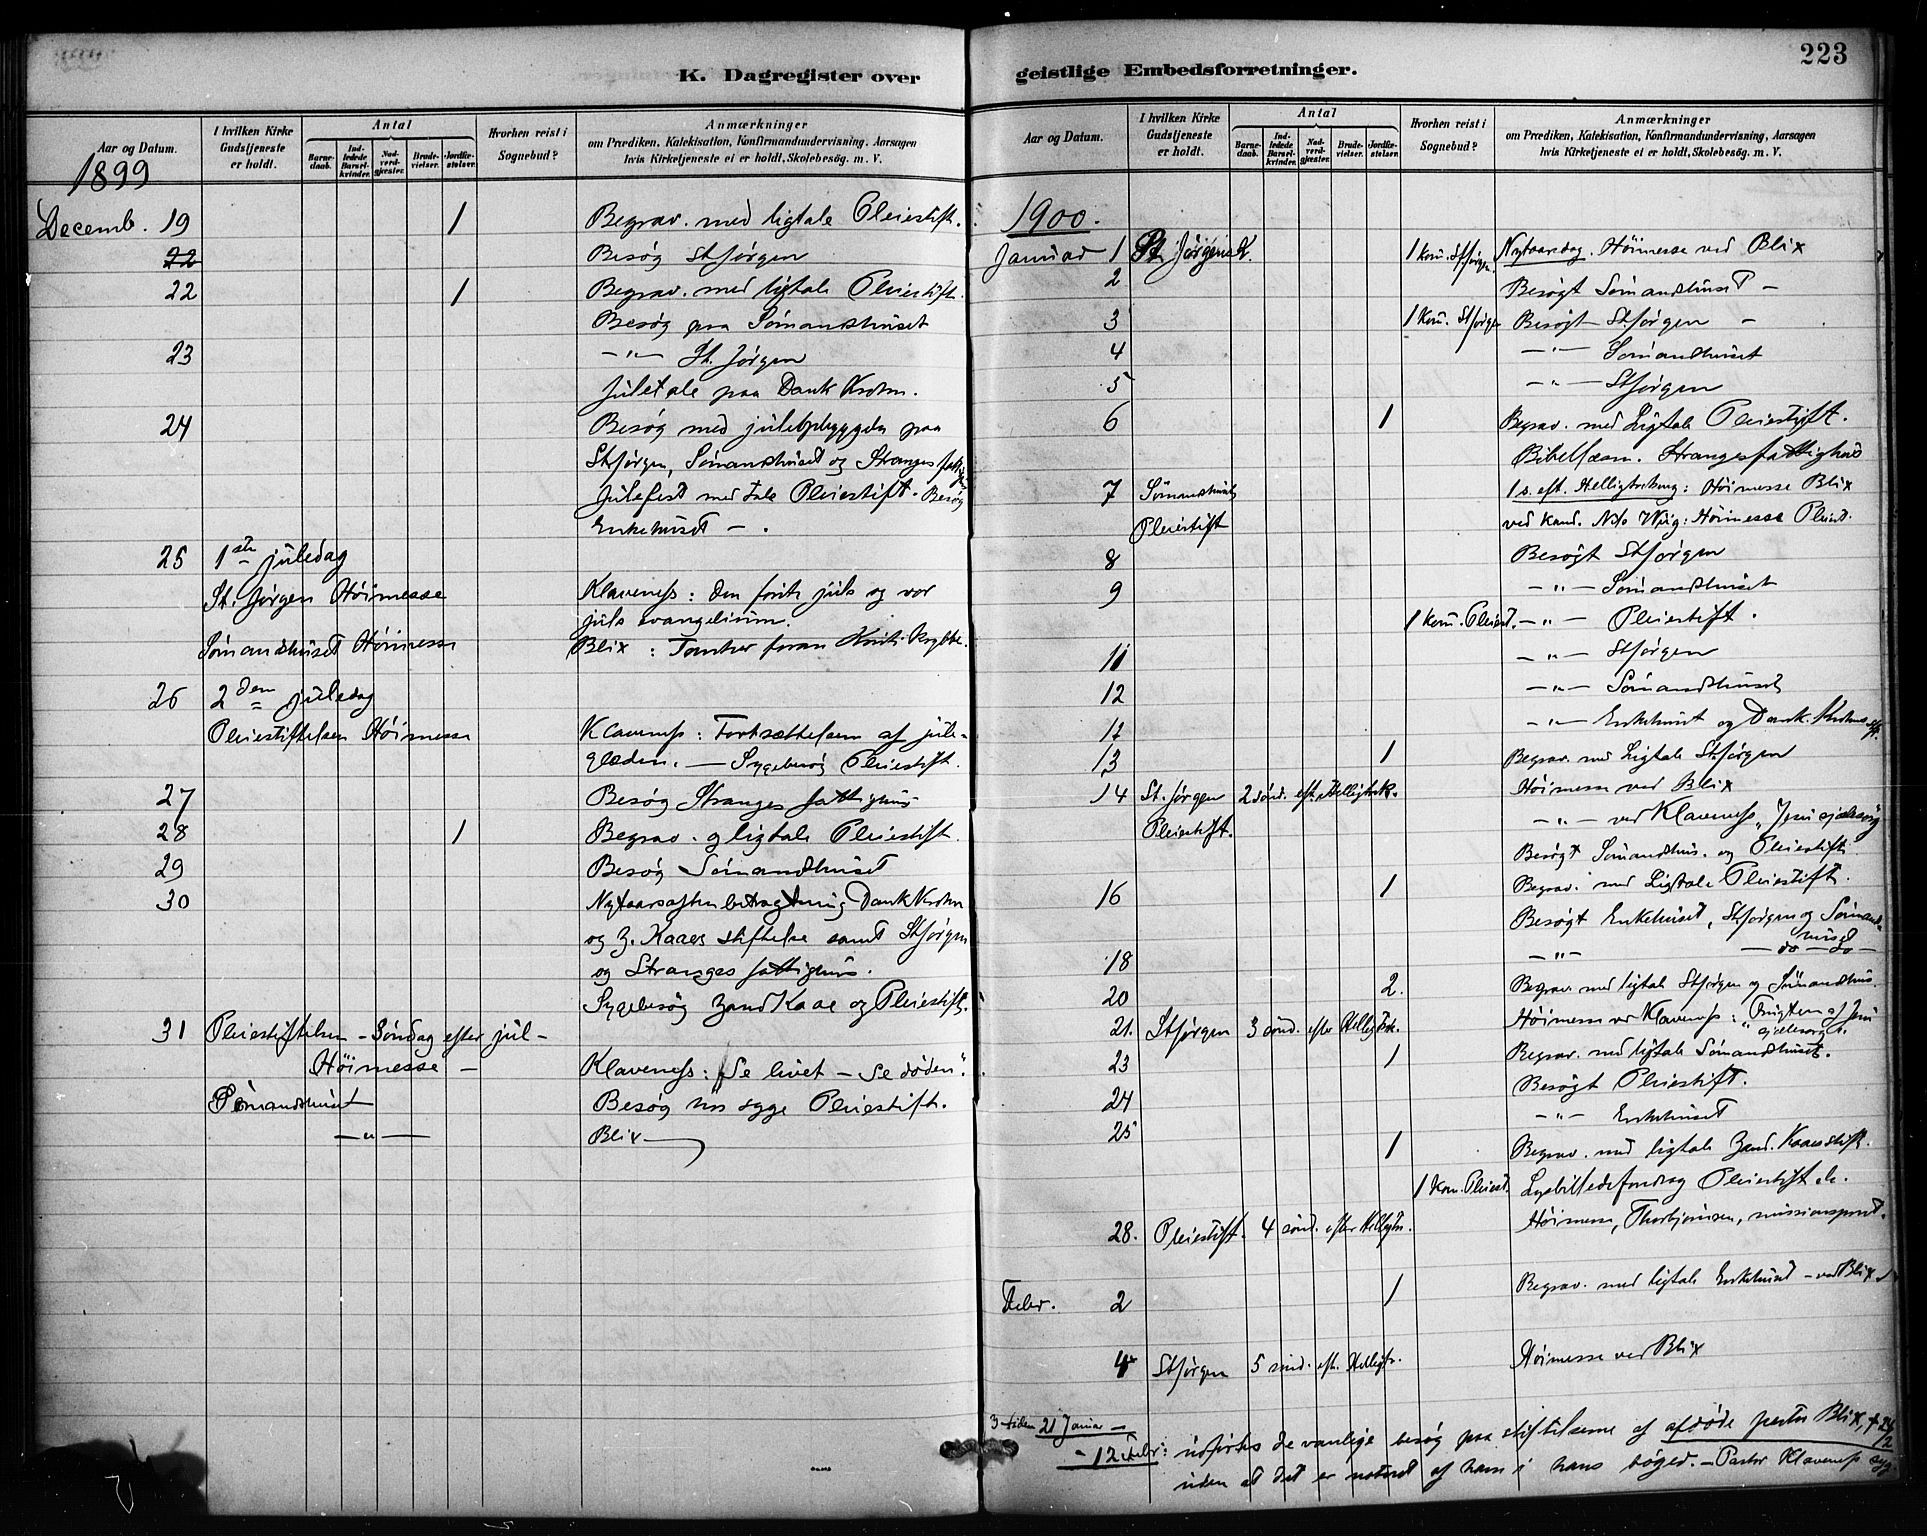 K. Dagregister over
Aar og Datum.
I hvilken Kirke Gudstjeneste er holdt.
Antal
Barne-daab.
Ind-ledede Barsel-kvinder.
Nad-verd-gjæster.
Brude-vielser.
Jordfæ-stelser.
Hvorhen reist i Sognebud?
Anmærkninger
om Prædiken, Katekisation, Konfirmandundervisning, Aarsagen
hvis Kirketjeneste ei er holdt, Skolebesög. m. V.
1899
Decemb. 19 1 Begrav. med ligtale Pleiestift.
22 Besøg St Jørgen
22 1 Begrav. med ligtale Pleiestift.
Besøg paa Sömandshuset
23 —"— St. Jørgen
Juletale paa Dank Krohn.
24 Besøg med juleopbyggelse paa
St Jørgen, Sömandshuset og Stranges
Julefest med tale Pleiestift. Besøg
Enkehuset — .
25 1ste juledag
St. Jørgen Höimesse Klaveness: Den første jul og vor
juls evangelium.
Sømandshuset Höimesse Blix: Tanker foran Kristi Krybbe.
26 2den juledag
Pleiestiftelsen Höimesse Klaveness: Fortsættelsen af jule-
glæden. — Sygebesøg Pleiestift.
27 Besøg Stranges fattighus
28 1 Begrav. og ligtale Pleiestift.
29 Besøg Sömandshuset
30 Nytaarsaftenbetragtning Dank Krohn
og Z. Kaaes stiftelse samt St Jørgen
og Stranges fattighus.
Sygebesøg Zand Kaae og Pleiestift.
31 Pleiestiftelsen – Søndag efter jul –
Höimesse – Klaveness: Se livet – se døden".
Sömandshuset Besøg hos syge Pleiestift.
—"— Blix
223
geistlige Embedsforretninger.
Aar og Datum.
I hvilken Kirke Gudstjeneste er holdt.
Antal
Barne-daab.
Ind-ledede Barsel-kvinder.
Nad-verd-gjæster.
Brude-vielser.
Jordfæ-stelser.
Hvorhen reist i Sognebud?
Anmærkninger
om Prædiken, Katekisation, Konfirmandundervisning, Aarsagen
hvis Kirketjeneste ei er holdt, Skolebesög. m. V.
1900.
Januar 1 St. Jørgens K. 1 kom. St Jørgen. Nytaarsdag. Höimesse ved Blix
2 Besøgt Sömandshuset –
3 1 kom. St Jørgen Besøgt St Jørgen –
4 —"— Sömandshuset
5 —"— St Jørgen
6 1 Begrav. med Ligtale Pleiestift.
Bibellæsn. Stranges fattighus
7 Sömandshuset 1 s. eft. Helligtrekong: Höimesse Blix
Pleiestift ved Kand. Höimesse Pleiest.
8 Besøgt St Jørgen
9 —"— Sömandshuset
1 kom. Pleiest. —"— Pleiestift.
11 —"— St Jørgen
12 —"— Sömandshuset
12 —"— Enkehuset og Dank. Krohns
13 1 Begrav. med Ligtale St Jørgen
14 St. Jørgen 2 sönd. eft. Helligtrek. Höimesse ved Blix
Pleiestift. —"— ved Klaveness „Jesu sjælesorg
Besøgt Sömandshus. og Pleiestift
16 1 Begrav. med Ligtale Pleiestift.
Besøgt Enkehuset, St Jørgen og Sömands-
huset
18 —"— — do — do —
20 2. Begrav. med ligtale St Jørgen og Sömandshus.
21. St Jørgen 3 sönd. efter Helligtrek. Höimesse ved Klaveness: „Frugten af Jesu
sjælesorg".
23 1 Begrav. med ligtale Sömandshuset.
Besøgt Pleiestift.
24 —"— Enkehuset
25 1 Begrav. med ligtale Zand. Kaaes stift.
1 kom. Pleiest. Lysbilledeforedrag Pleiestift.
28. Pleiestift. 4 sönd. efter Helligtr. Höimesse, Thorbjørnsen, missionsprest.
Febr. 2 1 Begrav. med ligtale Enkehuset – ved Blix
4 St Jørgen 5 sönd. eft. Helligtr. Höimesse ved Blix
21 Januar –
– 12 Febr: udførtes de vanlige besøg paa stiftelserne af afdøde pastor Blix, †
uden at det er noteret af ham i hans bøger. – Pastor Klaveness syg